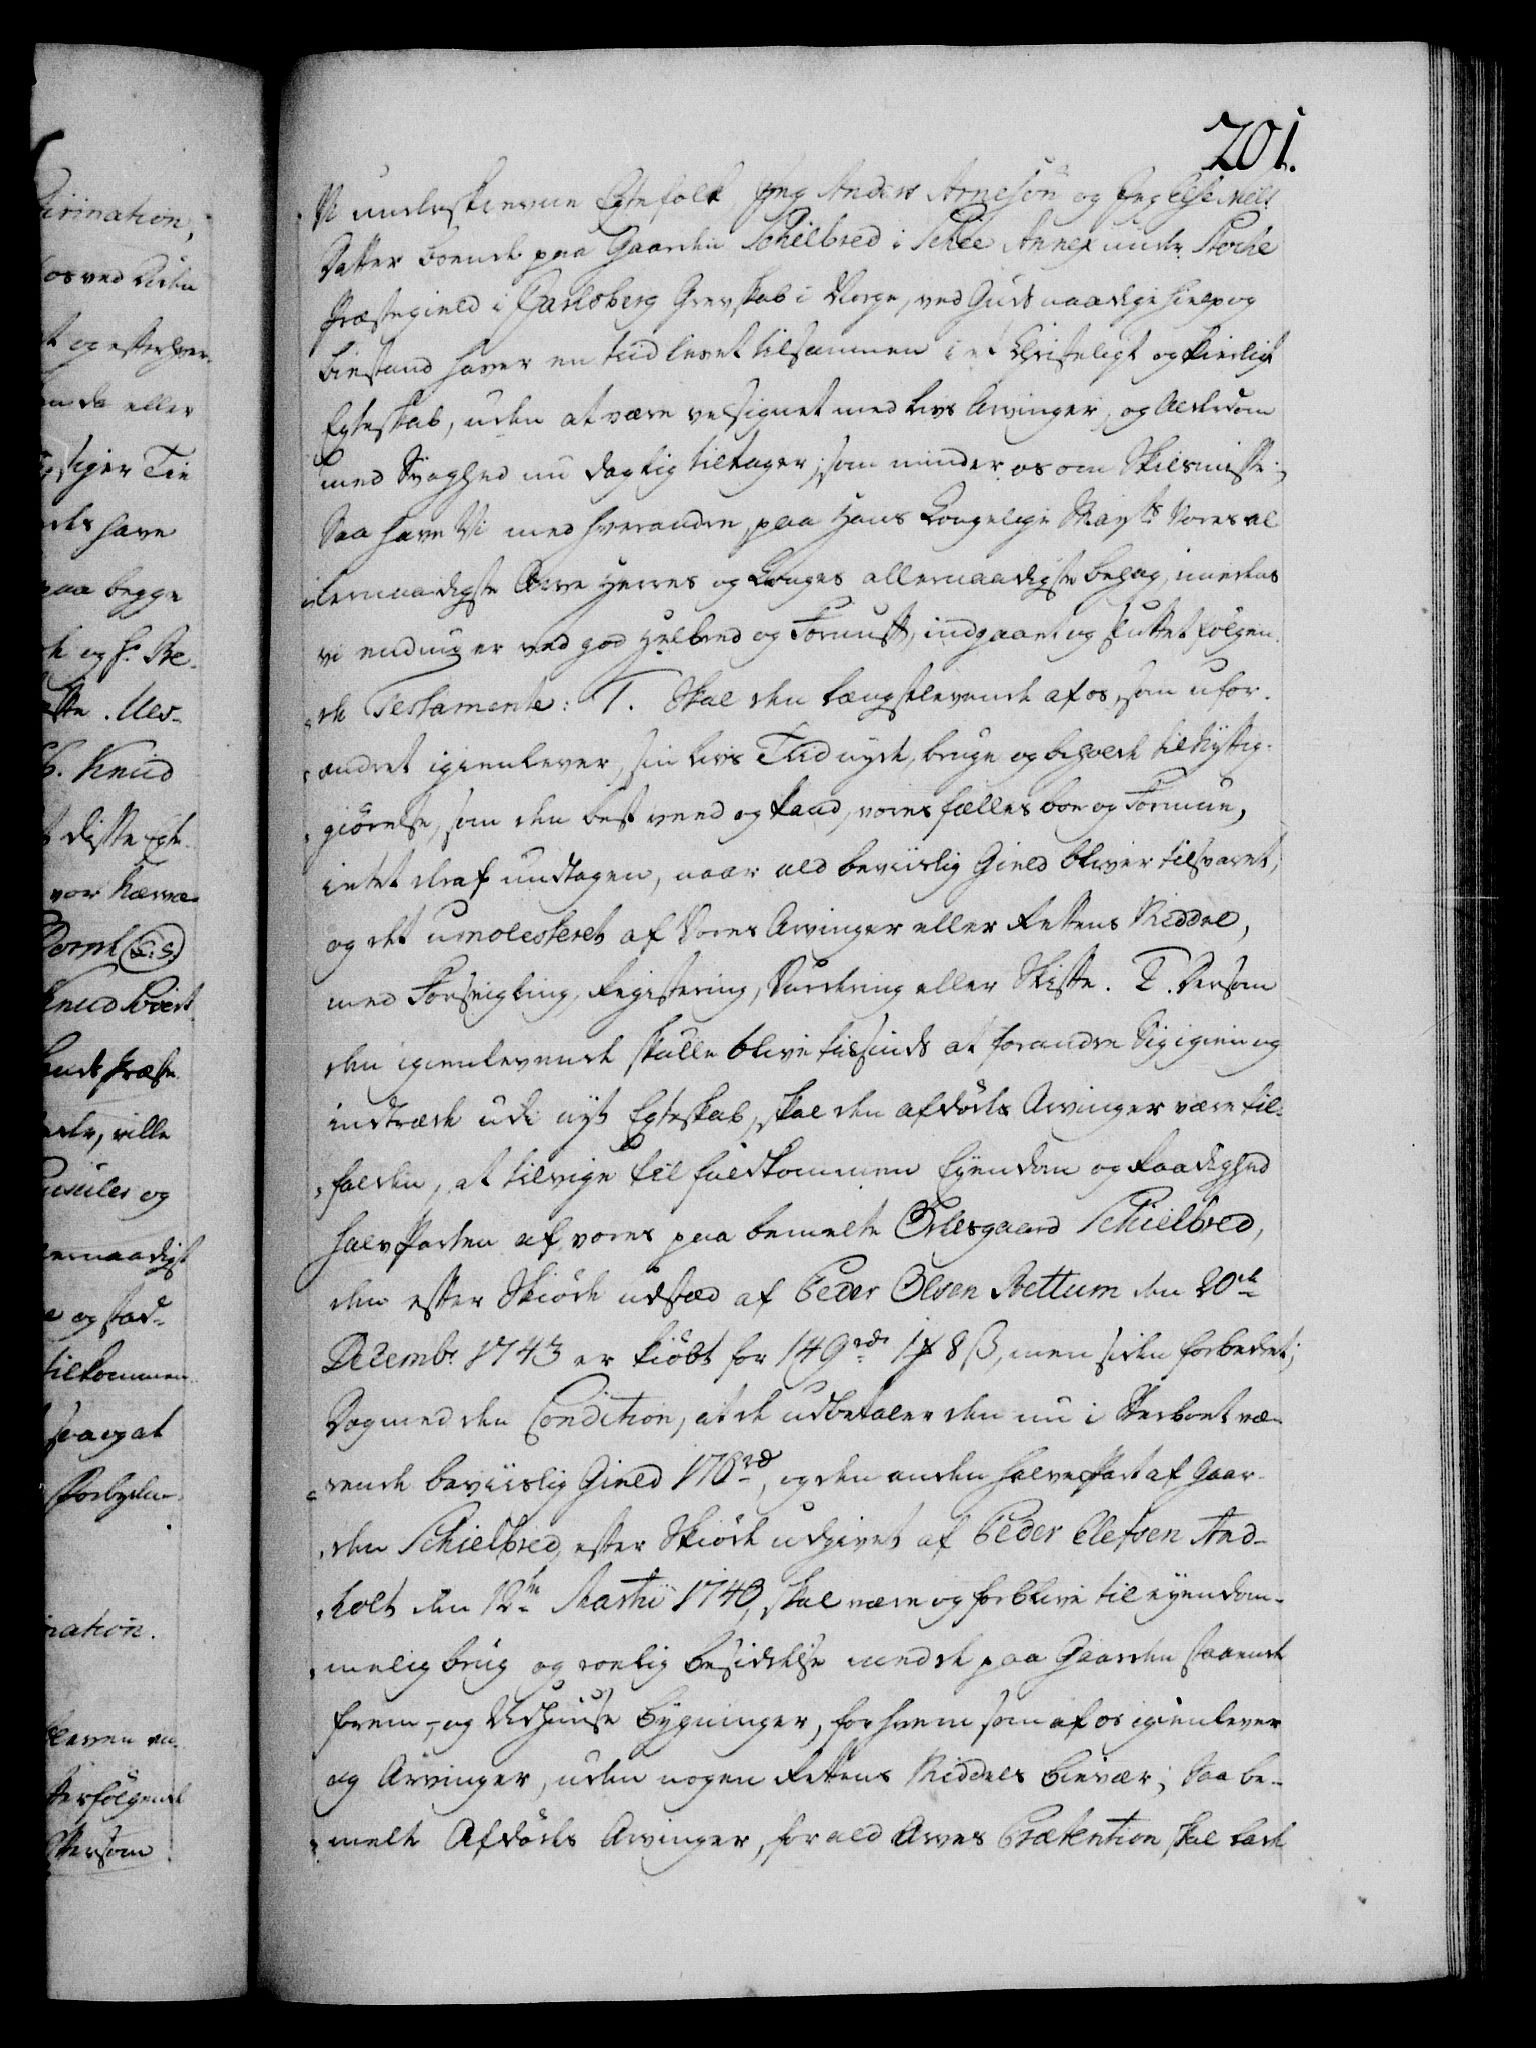 201.
Vi underskrevne Egtefolk Jeg Anders Arnesøn og Jeg Else Niels
Datter boende paa Gaarden Schielbred i Schee Annex under Stoche
Præstegield i Jarlsberg Grevskab i Norge, ved Guds naadige hielp og
biestand haver en tiid levet tilsammen i et Christeligt og kierligt
Egteskab, uden at være velsignet med Livs Arvinger, og Alderdom
med Svaghed nu daglig tiltager, som minder os om Skilsmisse;
Saa have Vi med hverandre, paa Hans Kongelige Mayts Vores al
lernaadigste Arve Herres og Konges allernaadigste behag, imedens
vi endnu er ved god Helbred og Fornuft, indgaaet og sluttet følgen-
de Testamente: 1. Skal den længstlevende af os, som ufor-
andret igienlever, sin livs Tiid nyde, bruge og beholde til Nyttig-
giørelse, som den best veed og kand, vores fælles boe og Formue,
intet deraf undtagen, naar ald beviislig Gield bliver tilsvaret,
og det umolesteret af Vores Arvinger eller Rettens Middel,
med Forseigling, Registering, Vurdering eller Skifte. 2. Dersom
den igienlevende skulle blive tilsinds at forandre Sig igien og
indtræde udi nyt Egteskab, skal den afdødes Arvinger være til-
falden, at tilvige til fuldkommen Eyendom og Raadighed
halv Parten af vores paa bemelte Odelsgaard Schielbred,
den efter Skiøde udstæd af Peder Olsen Bettum den 20de
Decembr 1743 er kiøbt for 149 rdr 1 # 8 ß, men siden forbedret;
Dog med den Condition, at de udbetaler den nu i Sterboet væ-
rende beviislig Gield 176 rd, og den anden halve Part af Gaar-
den Schielbred, efter Skiøde udgivet af Peder Olefsen And-
holt den 12te Martii 1743, skal være og forblive til eyendom-
melig brug og roelig besiddelse med de paa Gaarden staaende
frem- og Udhuuse Bygninger, for hvem som af os igienlever
og Arvinger, uden nogen Rettens Middels bievær; Saa be-
melte Afdødes Arvinger, for ald Arves Prætention skal lade